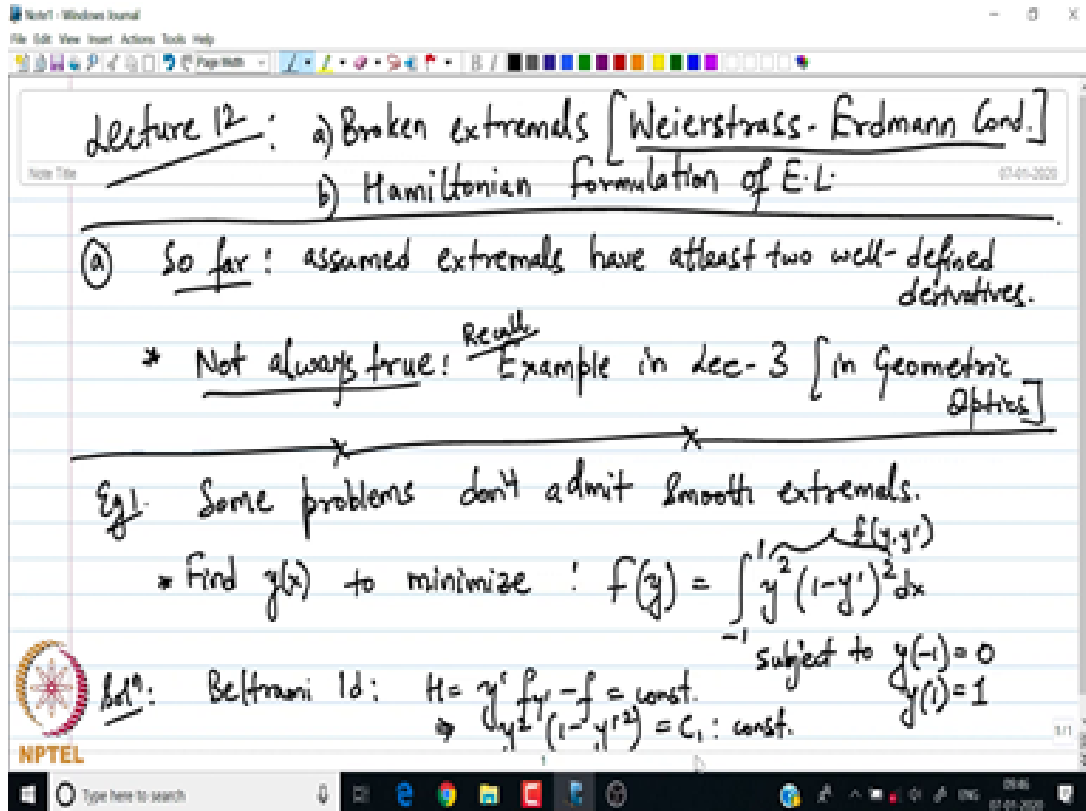 Note1 - Windows Journal
File Edit View Insert Actions Tools Help
Page Width
B I
Lecture 12 : a) Broken extremals [Weierstrass - Erdmann Cond.]
Note Title
07-01-2020
b) Hamiltonian formulation of E.L.
(a) So far : assumed extremals have atleast two well-defined
derivatives.
Recall
* Not always true : Example in Lec-3 [in Geometric
Optics]
Eg1. Some problems don't admit smooth extremals.
f(y,y')
* Find y(x) to minimize : f(y) = ∫_{-1}^{1} y² (1-y')² dx
subject to y(-1) = 0
y(1) = 1
Solⁿ : Beltrami Id : H = y' f_{y'} - f = const.
⇒ y² (1 - y'²) = C₁ : const.
NPTEL
1/1
1
Type here to search
ENG
09:46
07-01-2020